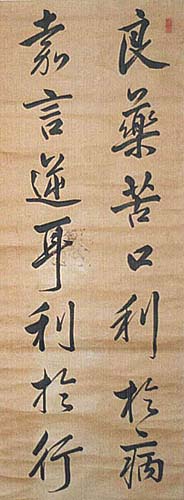 良藥苦口利於病
嘉言逆耳利於行